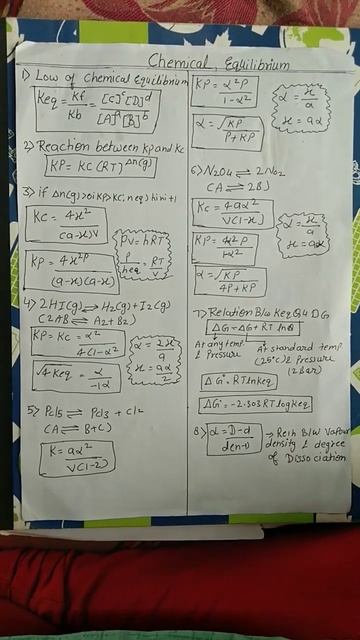 Chemical Equilibrium
1) Low of Chemical Equilibrium
Keq = Kf/Kb = [C]^c [D]^d / [A]^a [B]^b
2) Reaction between Kp and Kc
KP = KC (RT)^Δn(g)
3) if Δn(g) >0i KP > KC
KC = 4x² / (a-x)V
PV = nRT
P/neq = RT/V
KP = 4x²P / (a-x)(a-x)
4) 2HI(g) ⇌ H2(g) + I2(g)
(2AB ⇌ A2 + B2)
KP = KC = α² / 4(1-α²
α = 2x/a
x = aα/2
√4Keq = α/-1α
5) Pcl5 ⇌ Pcl3 + Cl2
(A ⇌ B + C)
K = aα² / V(1-2)
KP = α²P / 1-α²
α = x/a
x = aα
α = √KP / P+KP
6) N2O4 ⇌ 2NO2
(A ⇌ 2B)
KC = 4aα² / V(1-x)
α = x/a
x = aα
KP = 4α²P / 1-α²
α = √KP / 4P+KP
7) Relation B/w Keq Q4 DG
ΔG = ΔG + RT lnQ
At any temp. & Pressure
At standard temp (25°C) & Pressure (1 2 bar)
ΔG° - RTlnKeq
ΔG = -2.303 RT logKeq
8) α = D-d / d(n-1)
→ Reln B/W Vapour
density & degree
of Dissociation